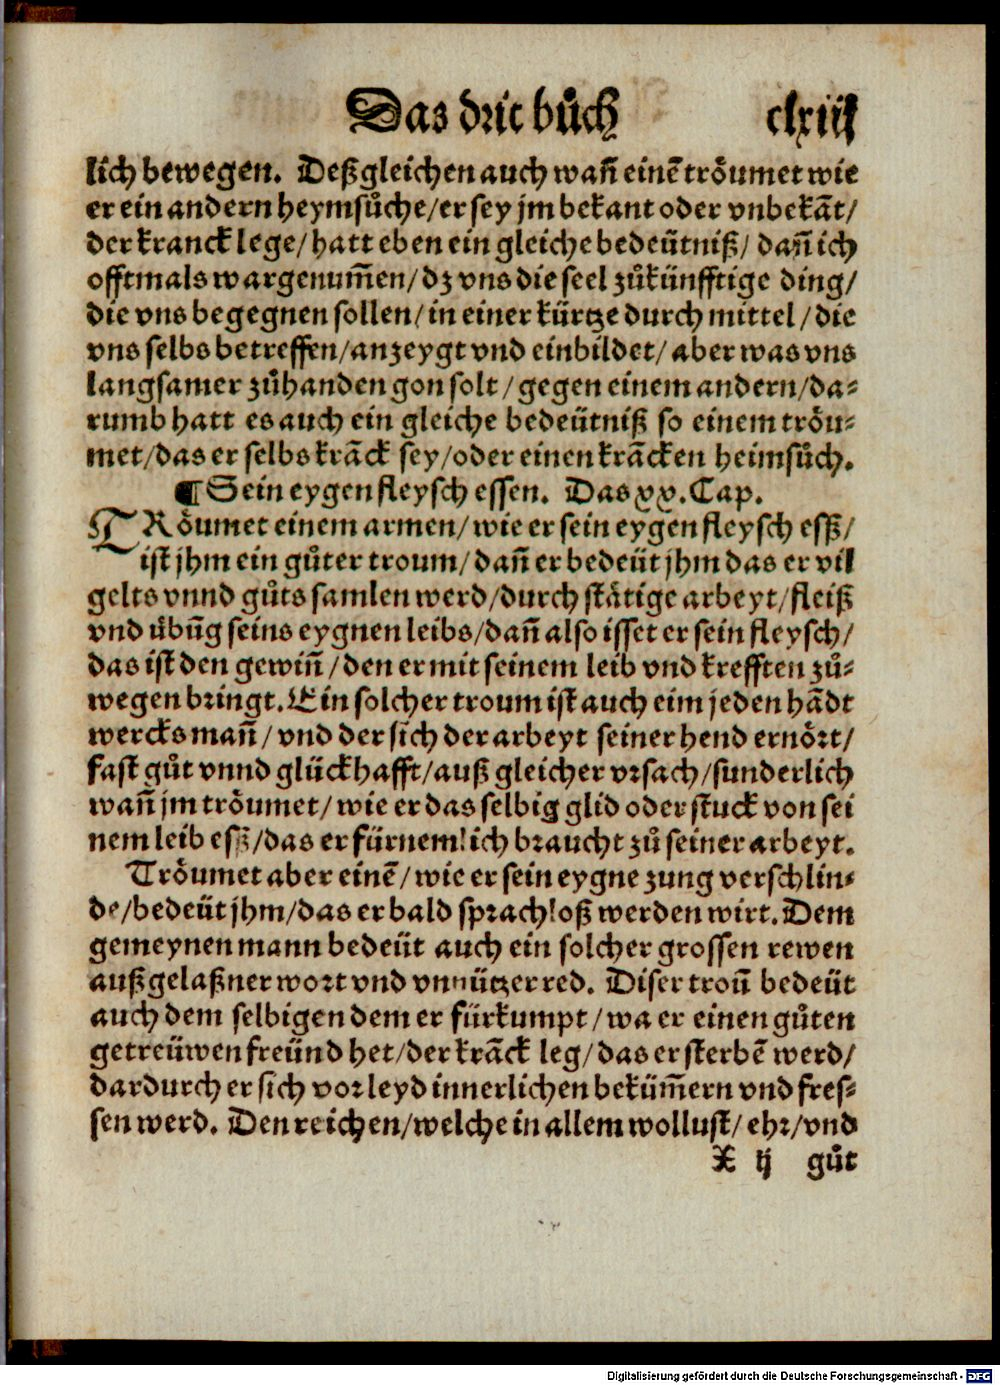 Das drit bůch clxiij
lich bewegen. Deßgleichen auch wañ einē trôumet wie
er ein andern heymsůche/er sey jm bekant oder vnbekāt/
der kranck lege/hatt eben ein gleiche bedeütniß/ dañ ich
offtmals wargenum̃en/dz vns die seel zůkünfftige ding/
die vns begegnen sollen/in einer kürtze durch mittel/die
vns selbs betreffen/anzeygt vnd einbildet/ aber was vns
langsamer zůhanden gon solt/gegen einem andern/da⸗
rumb hatt es auch ein gleiche bedeütniß so einem trôu⸗
met/das er selbs krāck sey/oder einen krācken heimsůch.
¶Sein eygen fleysch essen. Das xx. Cap.
TRôumet einem armen/wie er sein eygen fleysch esß/
ist jhm ein gůter troum/dañ er bedeüt jhm das er vil
gelts vnnd gůts samlen werd/durch stätige arbeyt/fleiß
vnd übūg seins eygnen leibs/dañ also isset er sein fleysch/
das ist den gewiñ/den er mit seinem leib vnd krefften zů⸗
wegen bringt. Ein solcher troum ist auch eim jeden hādt
wercksmañ/vnd der sich der arbeyt seiner hend ernört/
fast gůt vnnd glückhafft/auß gleicher vrsach/sunderlich
wañ jm trôumet/wie er das selbig glid oder stuck von sei
nem leib esß/das er fürnemlich braucht zů seiner arbeyt.
Trôumet aber einē/wie er sein eygne zung verschlin⸗
de/bedeüt jhm/das er bald sprachloß werden wirt. Dem
gemeynen mann bedeüt auch ein solcher grossen rewen
außgelaßner wort vnd vnnützer red. Diser troum̃ bedeüt
auch dem selbigen dem er fürkumpt/wa er einen gůten
getreüwen freünd het/der krāck leg/das er sterbē werd/
dardurch er sich vor leyd innerlichen beküm̃ern vnd fres⸗
sen werd. Den reichen/welche in allem wollust/ehr/vnd
X ij gůt
Digitalisierung gefördert durch die Deutsche Forschungsgemeinschaft - DFG